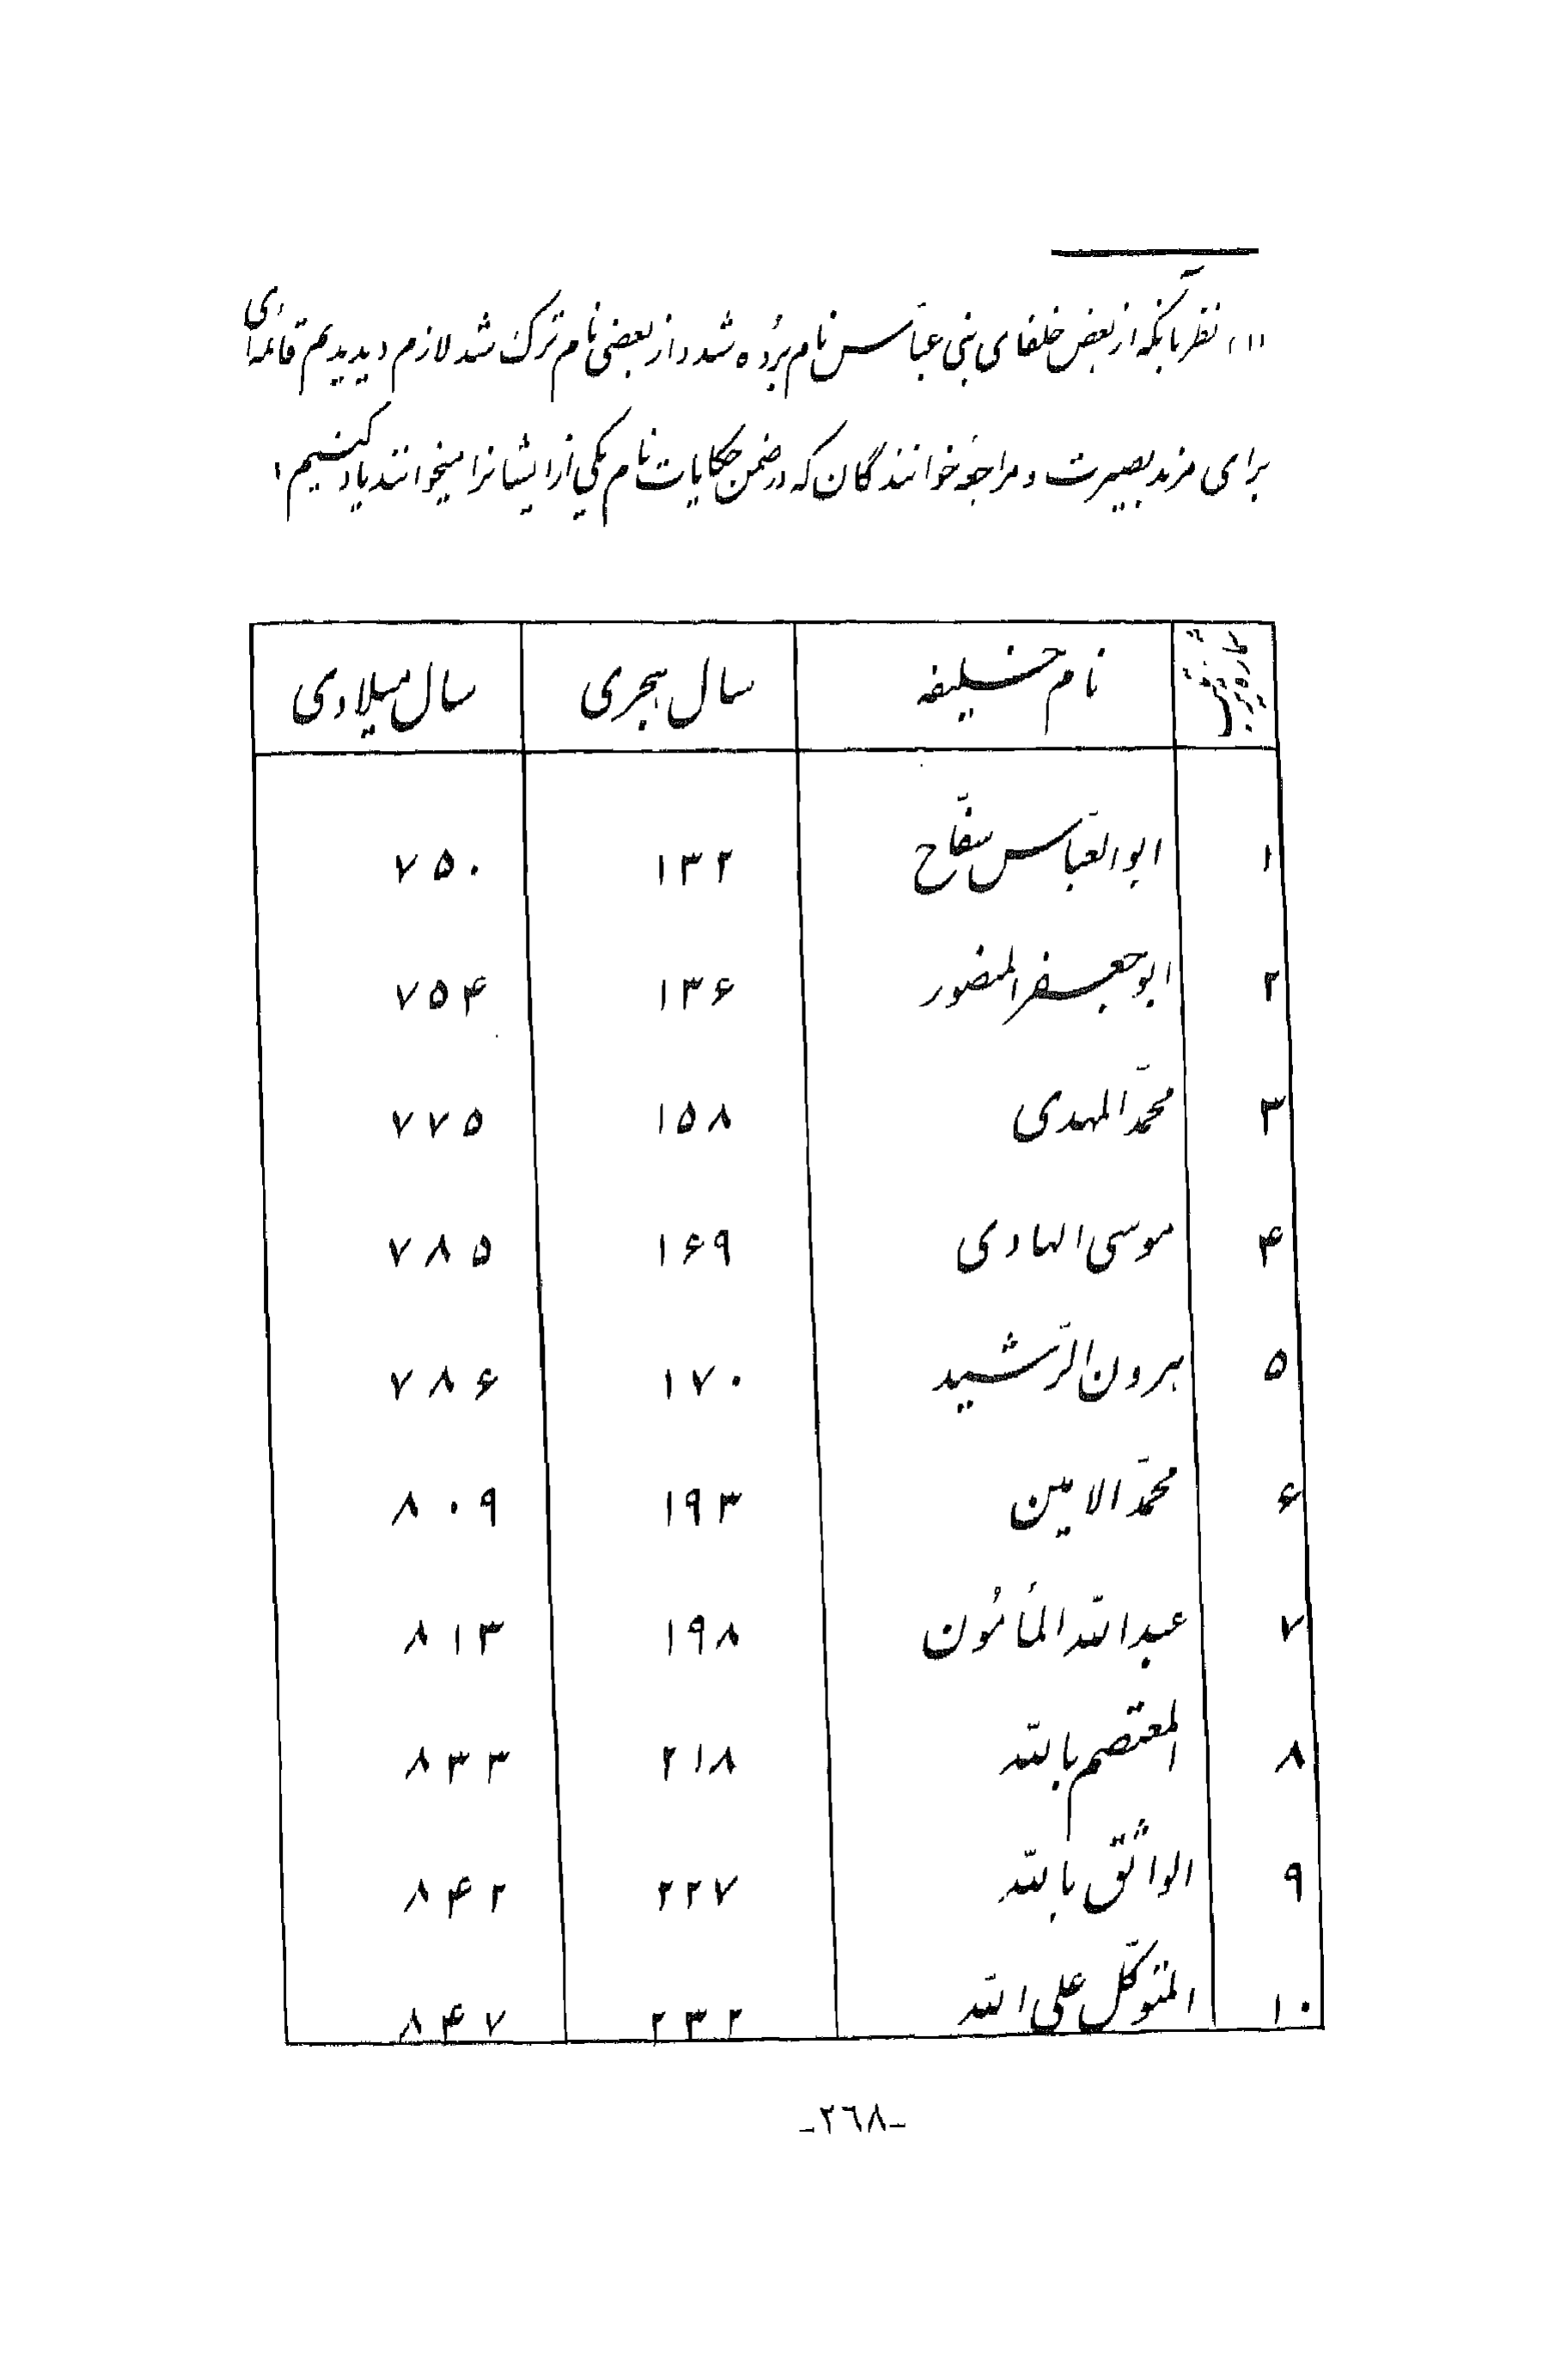 (۱) نظر بآنکه از بعض خلفای بنی عبّاس نام بُرده شد و از بعضی نام ترک شد لازم دیدیم قائمه‌ای
برای مزید بصیرت و مراجعهٔ خوانندگان که در ضمن حکایات نام یکی از ایشانرا میخوانند یاد کنیم:
نام خلیفه سال هجری سال میلادی
۱ ابوالعبّاس سفّاح ۱۳۲ ۷۵۰
۲ ابوجعفر المنصور ۱۳۶ ۷۵۴
۳ محمّد المهدی ۱۵۸ ۷۷۵
۴ موسی الهادی ۱۶۹ ۷۸۵
۵ هرون الرّشید ۱۷۰ ۷۸۶
۶ محمّد الامین ۱۹۳ ۸۰۹
۷ عبدالله المأمُون ۱۹۸ ۸۱۳
۸ المعتصم بالله ۲۱۸ ۸۳۳
۹ الواثق بالله ۲۲۷ ۸۴۲
۱۰ المتوکّل علی الله ۲۳۲ ۸۴۷
-٢٦٨-